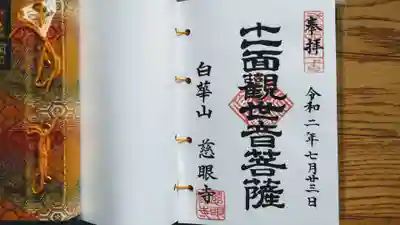 奉拝
令和二年七月廿三日
十一面觀世音菩薩
白華山 慈眼寺